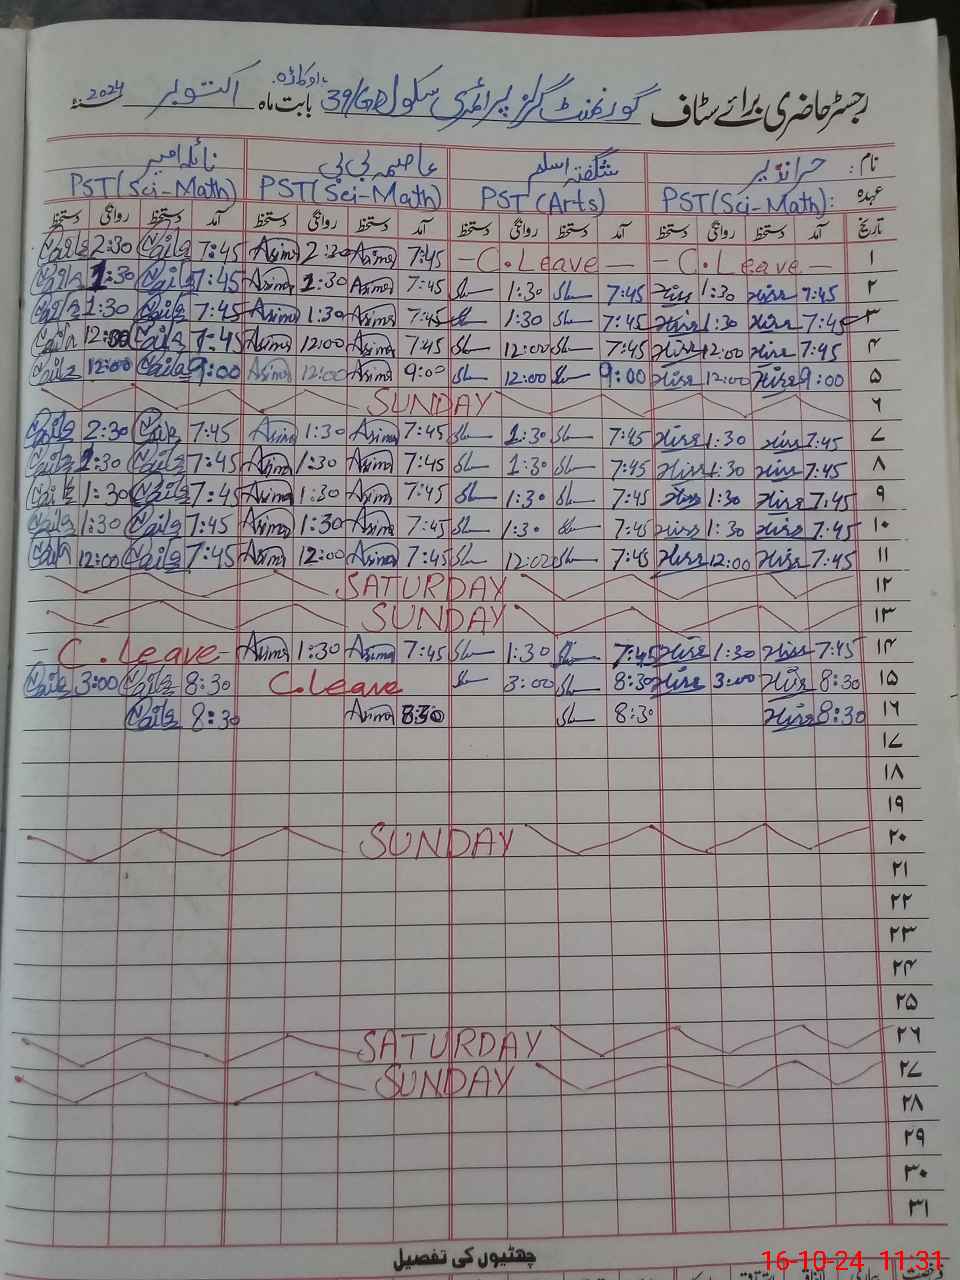 رجسٹر حاضری برائے سٹاف گورنمنٹ گرلز پرائمری سکول 39/GD اوکاڑہ بابت ماہ اکتوبر سنہ 2024
نام: حرا نذیر شگفتہ اسلم عاصمہ بی بی نائلہ امیر
عہدہ: PST(Sci-Math) PST(Arts) PST(Sci-Math) PST(Sci-Math)
تاریخ آمد دستخط روانگی دستخط آمد دستخط روانگی دستخط آمد دستخط روانگی دستخط آمد دستخط روانگی دستخط
۱ - C. Leave - - C. Leave - 7:45 Asima 2:30 Asima 7:45 Naila 2:30 Naila
۲ 7:45 Hira 1:30 Hira 7:45 1:30 7:45 Asima 1:30 Asima 7:45 Naila 1:30 Naila
۳ 7:45 Hira 1:30 Hira 7:45 1:30 7:45 Asima 1:30 Asima 7:45 Naila 1:30 Naila
۴ 7:45 Hira 12:00 Hira 7:45 12:00 7:45 Asima 12:00 Asima 7:45 Naila 12:00 Naila
۵ 9:00 Hira 12:00 Hira 9:00 12:00 9:00 Asima 12:00 Asima 9:00 Naila 12:00 Naila
۶ SUNDAY
۷ 7:45 Hira 1:30 Hira 7:45 1:30 7:45 Asima 1:30 Asima 7:45 Naila 2:30 Naila
۸ 7:45 Hira 1:30 Hira 7:45 1:30 7:45 Asima 1:30 Asima 7:45 Naila 1:30 Naila
۹ 7:45 Hira 1:30 Hira 7:45 1:30 7:45 Asima 1:30 Asima 7:45 Naila 1:30 Naila
۱۰ 7:45 Hira 1:30 Hira 7:45 1:30 7:45 Asima 1:30 Asima 7:45 Naila 1:30 Naila
۱۱ 7:45 Hira 12:00 Hira 7:45 12:00 7:45 Asima 12:00 Asima 7:45 Naila 12:00 Naila
۱۲ SATURDAY
۱۳ SUNDAY
۱۴ 7:45 Hira 1:30 Hira 7:45 1:30 7:45 Asima 1:30 Asima - C. Leave -
۱۵ 8:30 Hira 3:00 Hira 8:30 3:00 C. Leave 8:30 Naila 3:00 Naila
۱۶ 8:30 Hira 8:30 8:30 Asima 8:30 Naila
۱۷
۱۸
۱۹
۲۰ SUNDAY
۲۱
۲۲
۲۳
۲۴
۲۵
۲۶ SATURDAY
۲۷ SUNDAY
۲۸
۲۹
۳۰
۳۱
چھٹیوں کی تفصیل
16-10-24 11:31